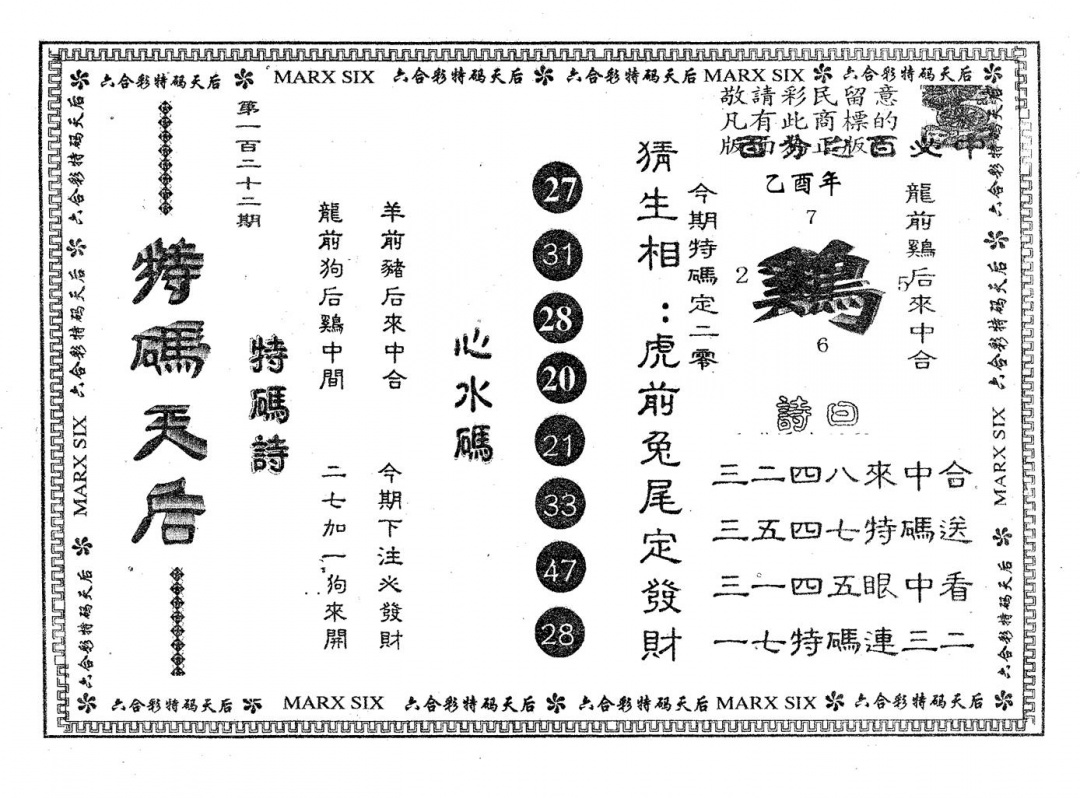 六合彩特码天后 MARX SIX 六合彩特码天后 六合彩特码天后 MARX SIX 六合彩特码天后
六合彩特码天后 MARX SIX 六合彩特码天后 六合彩特码天后
特碼天后
第一百二十二期
特碼詩
羊前豬后來中合
龍前狗后鷄中間
今期下注必發財
二七加一狗來開
心水碼
27
31
28
20
21
33
47
28
猜生相：虎前兔尾定發財
敬請彩民留意
凡有此商標的
百必中
乙酉年
今期特碼定二零
7
2
鷄
5
6
龍前鷄后來中合
詩曰
三二四八來中合
三五四七特碼送
三一四五眼中看
一七特碼連三二
六合彩特码天后 MARX SIX 六合彩特码天后 六合彩特码天后
六合彩特码天后 MARX SIX 六合彩特码天后 六合彩特码天后 MARX SIX 六合彩特码天后